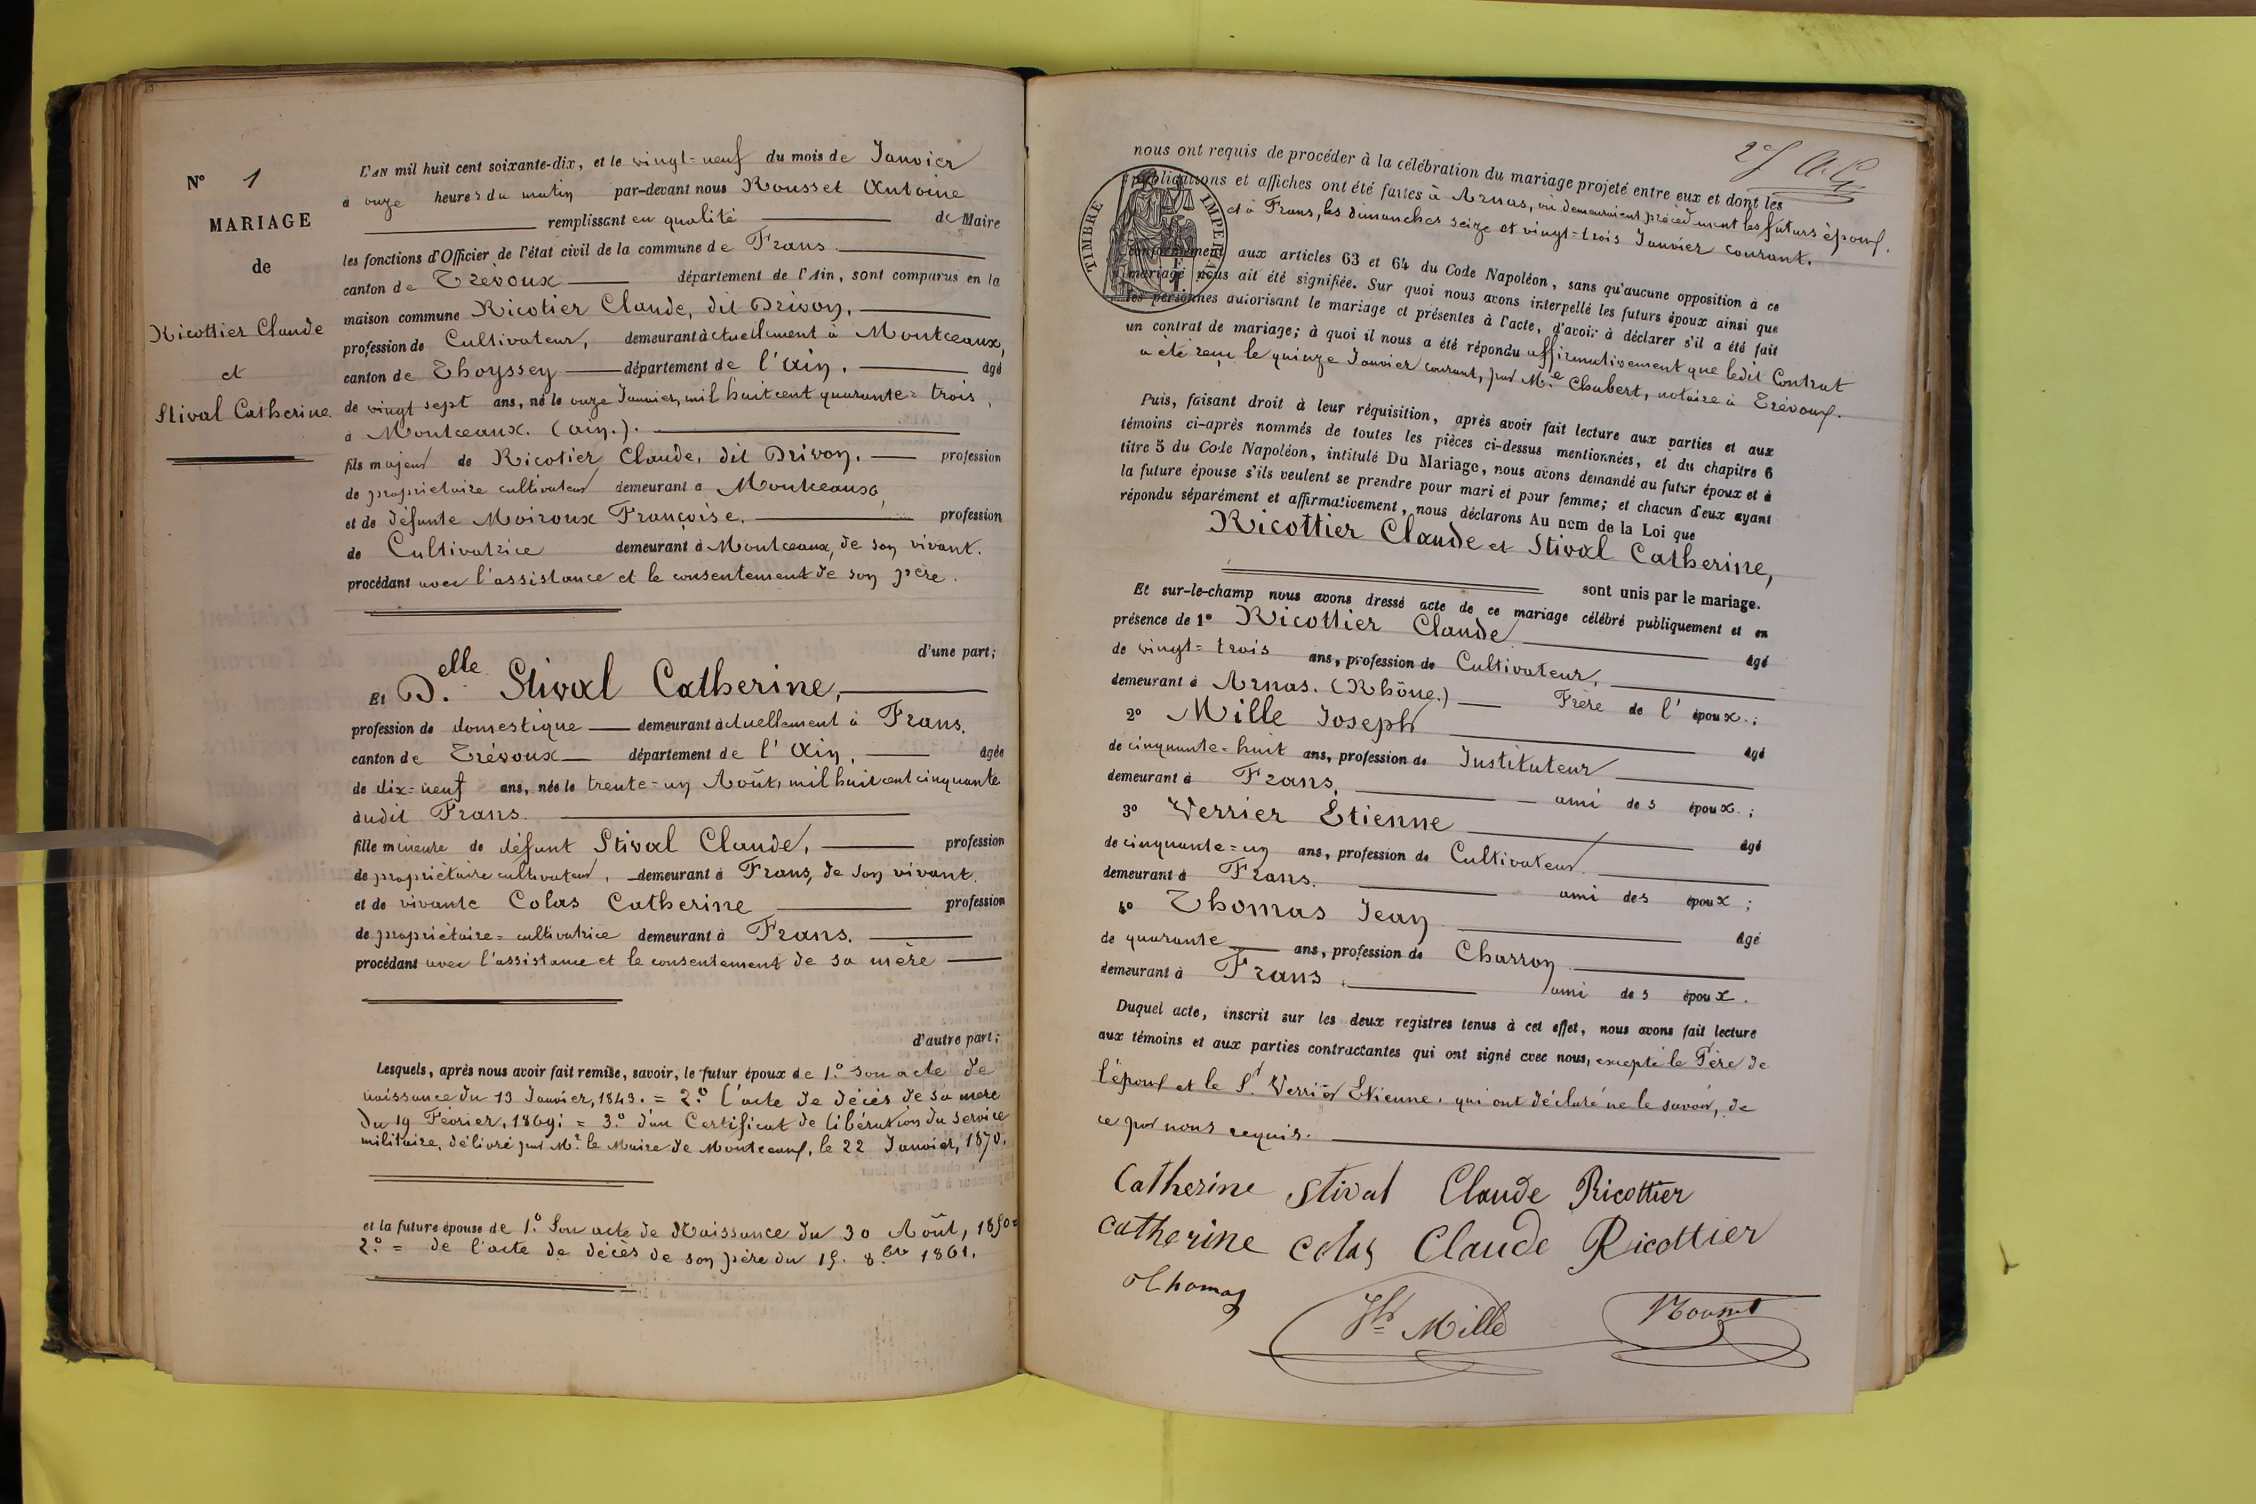 N° 1
MARIAGE
de
Ricottier Claude
et
Stival Catherine
L'AN mil huit cent soixante-dix, et le vingt=neuf du mois de Janvier
à onze heures du matin par-devant nous Rousset Antoine
remplissant en qualité de Maire
les fonctions d'Officier de l'état civil de la commune de Frans
canton de Trévoux département de l'Ain, sont comparus en la
maison commune Ricotier Claude, dit Drivon,
profession de Cultivateur, demeurant actuellement à Montceaux,
canton de Thoyssey département de l'Ain. âgé
de vingt sept ans, né le onze Janvier, mil huit cent quarante=trois,
à Montceaux. (Ain.).
fils majeur de Ricotier Claude, dit Drivon. profession
de propriétaire cultivateur demeurant à Montceaux,
et de défunte Moiroux Françoise. profession
de Cultivatrice demeurant à Montceaux, de son vivant.
procédant avec l'assistance et le consentement de son père.
d'une part;
Et D.elle Stival Catherine,
profession de domestique demeurant actuellement à Frans.
canton de Trévoux département de l'Ain, âgée
de dix=neuf ans, née le trente=un Août, mil huit cent cinquante
audit Frans.
fille mineure de défunt Stival Claude, profession
de propriétaire cultivateur, demeurant à Frans, de son vivant.
et de vivante Colas Catherine profession
de propriétaire=cultivatrice demeurant à Frans.
procédant avec l'assistance et le consentement de sa mère
d'autre part;
Lesquels, après nous avoir fait remise, savoir, le futur époux de 1.° Son acte de
naissance du 13 Janvier, 1843. = 2.° l'acte de décès de sa mère
du 19 Février, 1869; = 3.° d'un Certificat de libération du service
militaire, délivré par Mr. le Maire de Montceaux, le 22 Janvier, 1870.
et la future épouse de 1.° Son acte de Naissance du 30 Août, 1850=
2.° = de l'acte de décès de son père du 15. 8.bre 1861.
2e f
nous ont requis de procéder à la célébration du mariage projeté entre eux et dont les
publications et affiches ont été faites à Arnas, où demeuraient précédemment les futurs époux,
et à Frans, les dimanches seize et vingt=trois Janvier courant.
TIMBRE IMPERIAL
conformément aux articles 63 et 64 du Code Napoléon, sans qu'aucune opposition à ce
mariage nous ait été signifiée. Sur quoi nous avons interpellé les futurs époux ainsi que
les personnes autorisant le mariage et présentes à l'acte, d'avoir à déclarer s'il a été fait
un contrat de mariage; à quoi il nous a été répondu affirmativement que ledit Contrat
a été reçu le quinze Janvier courant, par M.e Chabert, notaire à Trévoux.
Puis, faisant droit à leur réquisition, après avoir fait lecture aux parties et aux
témoins ci-après nommés de toutes les pièces ci-dessus mentionnées, et du chapitre 6
titre 5 du Code Napoléon, intitulé Du Mariage, nous avons demandé au futur époux et à
la future épouse s'ils veulent se prendre pour mari et pour femme; et chacun d'eux ayant
répondu séparément et affirmativement, nous déclarons Au nom de la Loi que
Ricottier Claude et Stival Catherine,
sont unis par le mariage.
Et sur-le-champ nous avons dressé acte de ce mariage célébré publiquement et en
présence de 1° Ricottier Claude âgé
de vingt=trois ans, profession de Cultivateur,
demeurant à Arnas. (Rhône.) Frère de l'époux.;
2° Mille Joseph âgé
de cinquante=huit ans, profession de Instituteur
demeurant à Frans. ami des époux.;
3° Verrier Étienne âgé
de cinquante=un ans, profession de Cultivateur.
demeurant à Frans. ami des époux;
4° Thomas Jean âgé
de quarante ans, profession de Charron
demeurant à Frans. ami des époux.
Duquel acte, inscrit sur les deux registres tenus à cet effet, nous avons fait lecture
aux témoins et aux parties contractantes qui ont signé avec nous, excepté le Père de
l'époux et le Sr. Verrier Etienne, qui ont déclaré ne le savoir, de
ce par nous requis.
Catherine Stival Claude Ricottier
catherine colas Claude Ricottier
Thomas
Jh Mille
Rousset